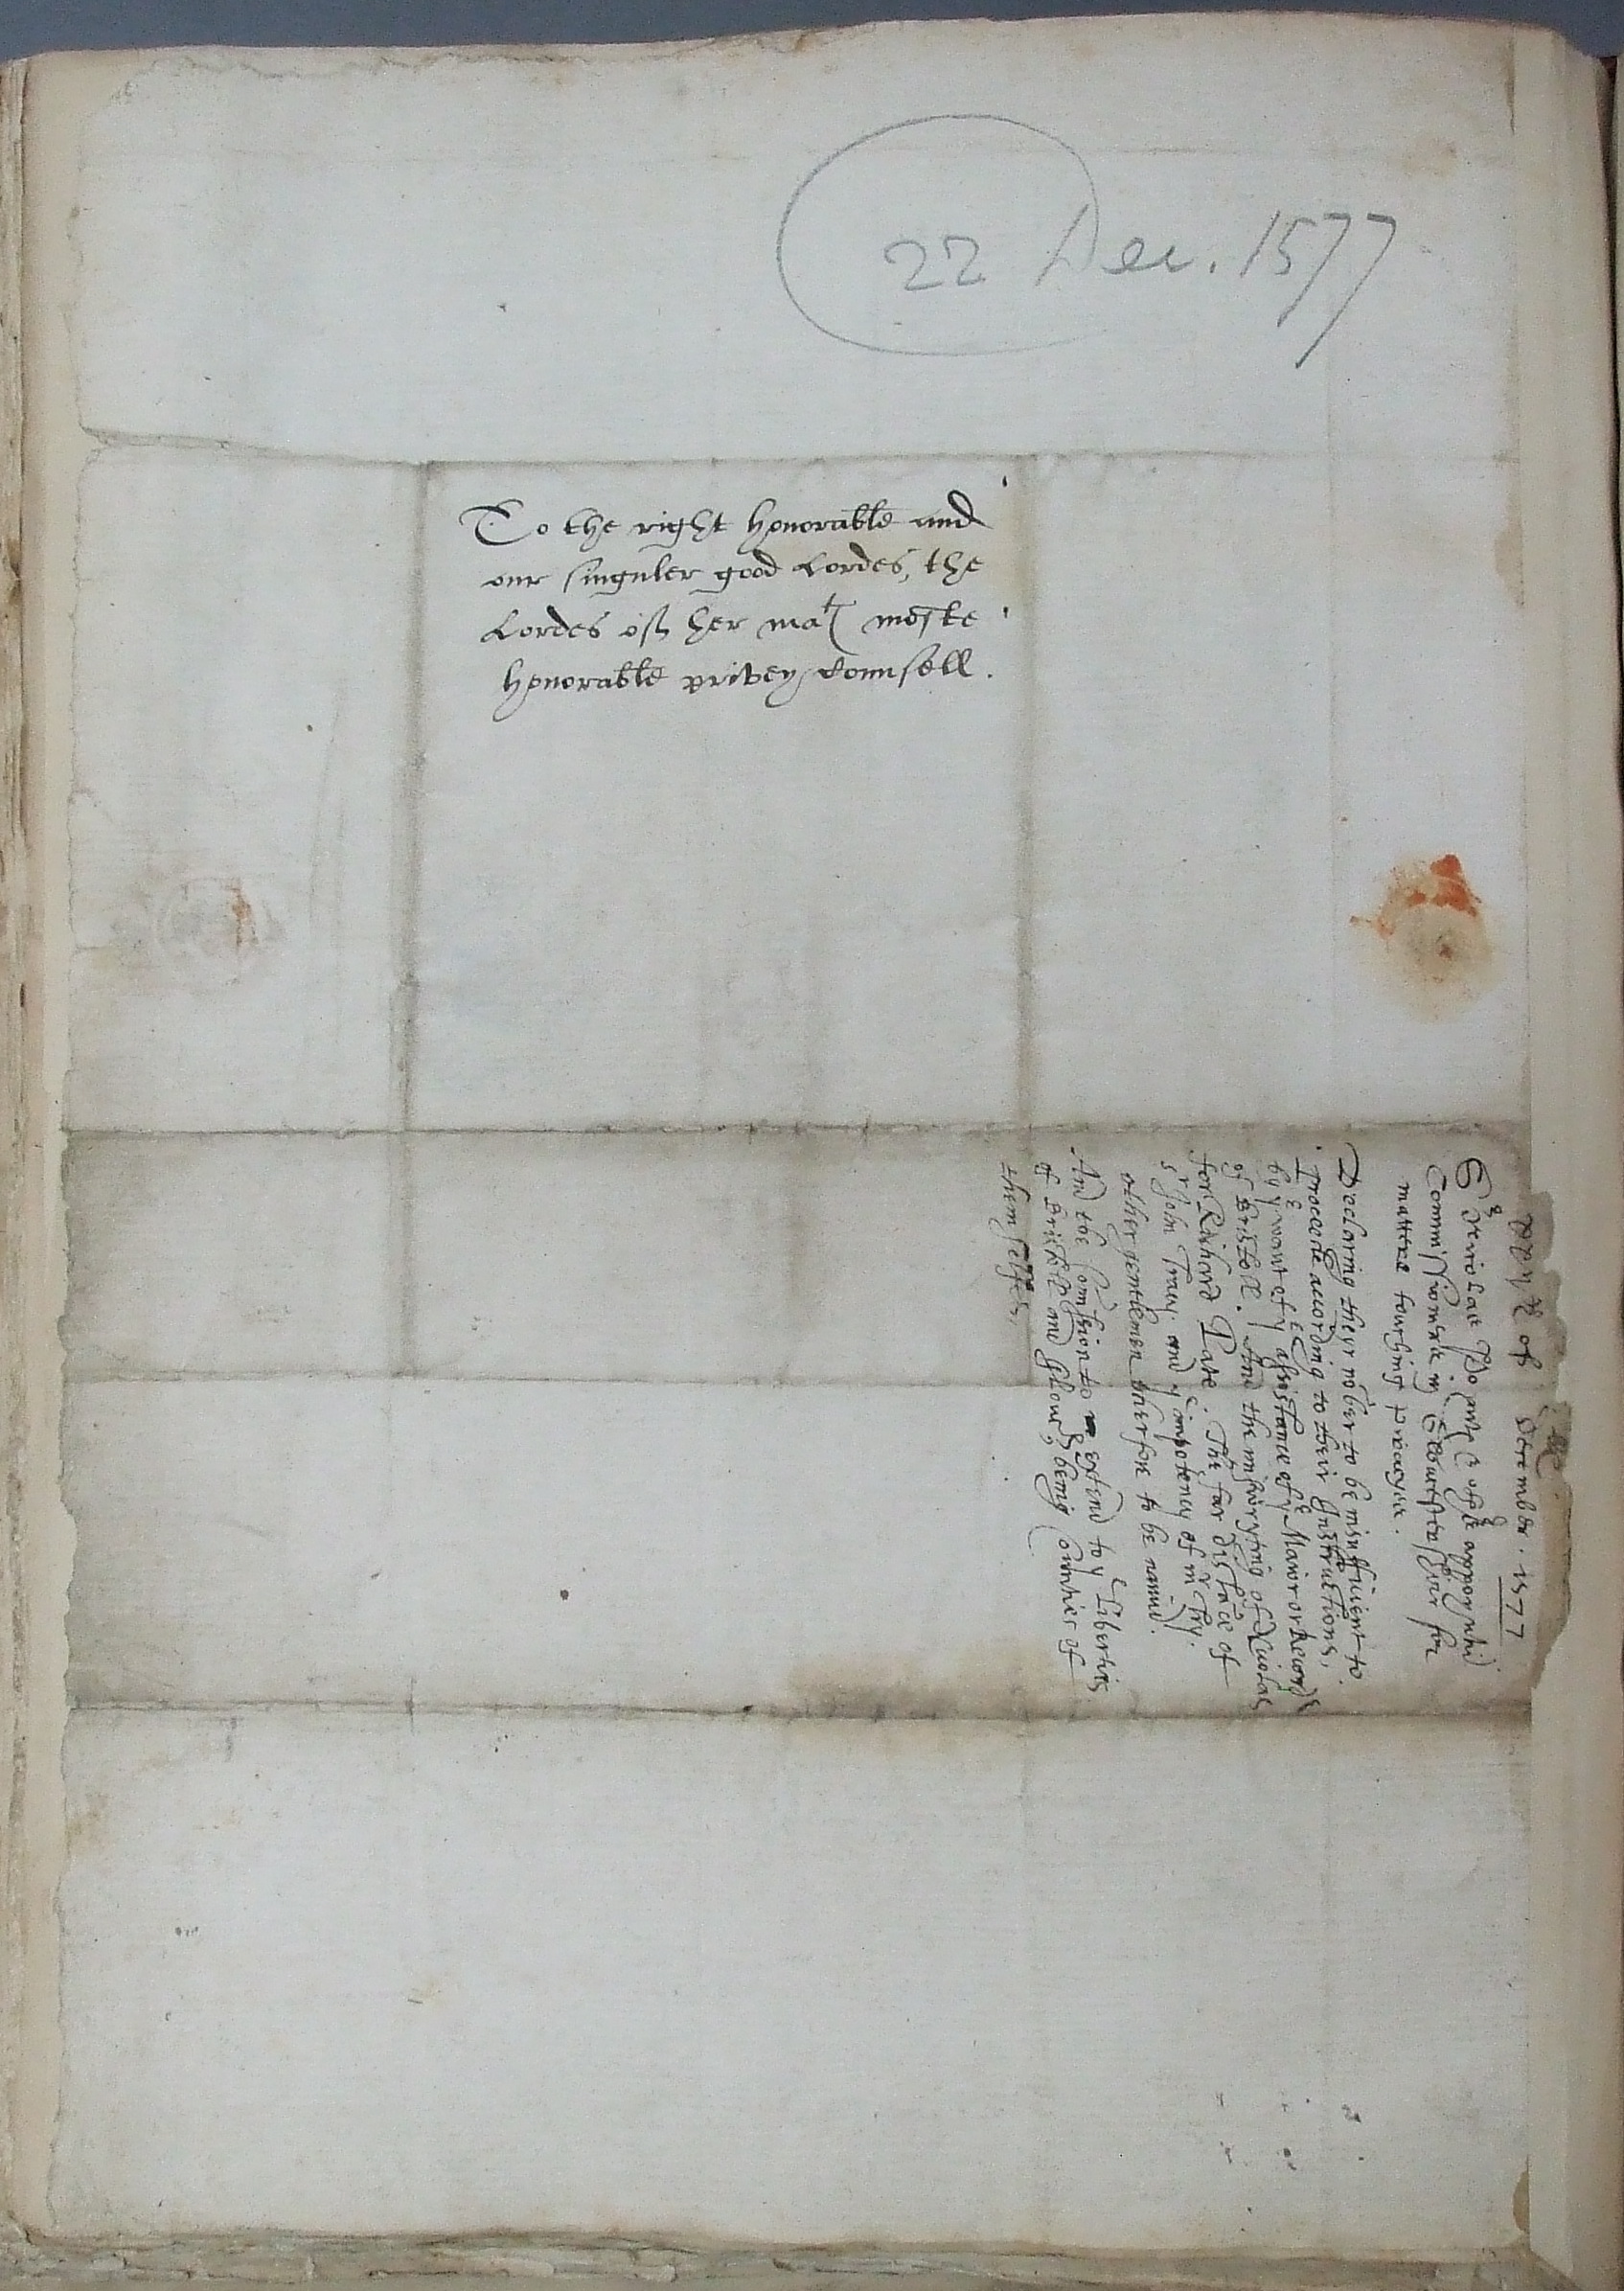 22 Dec. 1577
To the right honorable and
our singuler good Lordes, the
Lordes off her ma^t moste
honorable privey Counsell.
of december . 1577
appoyntid
Commissioners in for
matters touching pyracyes.
Declaring their nober to be insufficient to
proceede according to their Instructions,
by y^e want of y^e assistance of y^e Maior or Recorder
of Bristoll. And the miscarying of Nicolas
for Richard Pate. The far distace of
S^r John Tracy and y^e impotency of m^r
other gentlemen therfore to be namid.
And the Comission to extend to y^e Liberties
of Bristoll and Glouc^r being Counties of
themselfes.